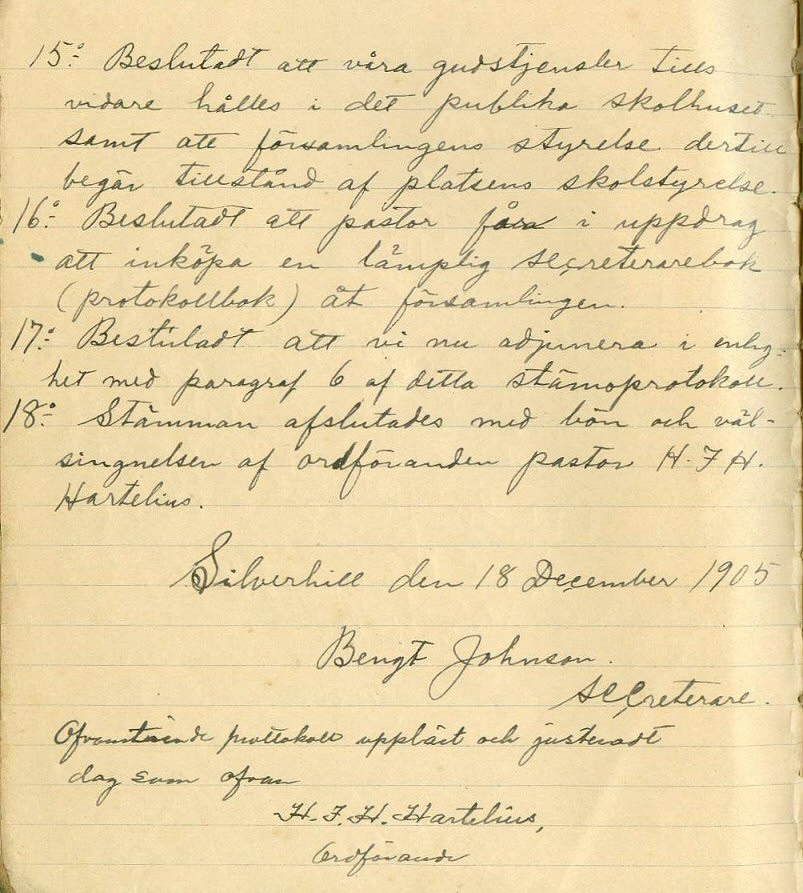 15º: Beslutadt att våra gudstjenster tills
vidare hålles i det publika skolhuset
samt att församlingens styrelse dertill
begär tillstånd af platsens skolstyrelse.
16º: Beslutadt att pastor får i uppdrag
att inköpa en lämplig secreterarebok
(protokollbok) åt församlingen.
17º: Beslutadt att vi nu adjunera i enlig-
het med paragraf 6 af detta stämoprotokoll.
18º: Stämman afslutades med bön och väl-
singnelsen af ordföranden pastor H. F. H.
Hartelius.
Silverhill den 18 December 1905
Bengt Johnson.
secreterare.
Ofvanstående protokoll uppläst och justeradt
dag som ofvan
H. F. H. Hartelius,
Ordförande